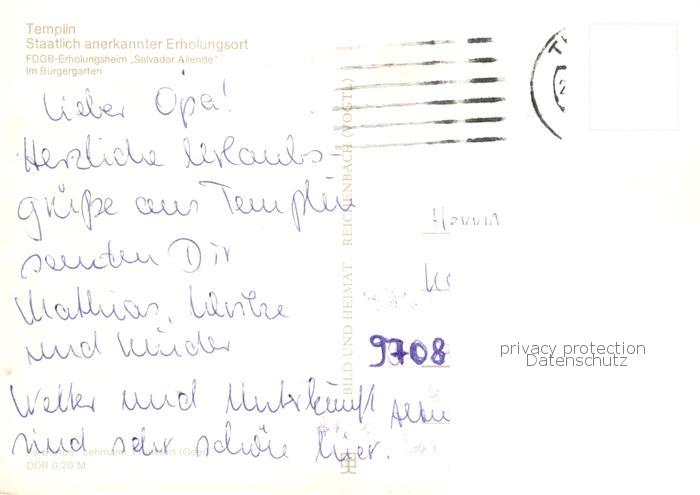 Templin
Staatlich anerkannter Erholungsort
FDGB-Erholungsheim „Salvador Allende"
Im Bürgergarten
Lieber Opa!
Herzliche Urlaubs-
grüße aus Templin
senden Dir
Mathias,
und Kinder
Wetter und Unterkunft
sind sehr schön hier.
Lehmann, Frankfurt (Oder)
DDR 0,20 M
BILD UND HEIMAT REICHENBACH (VOGTL)
Herrn
9708
privacy protection
Datenschutz